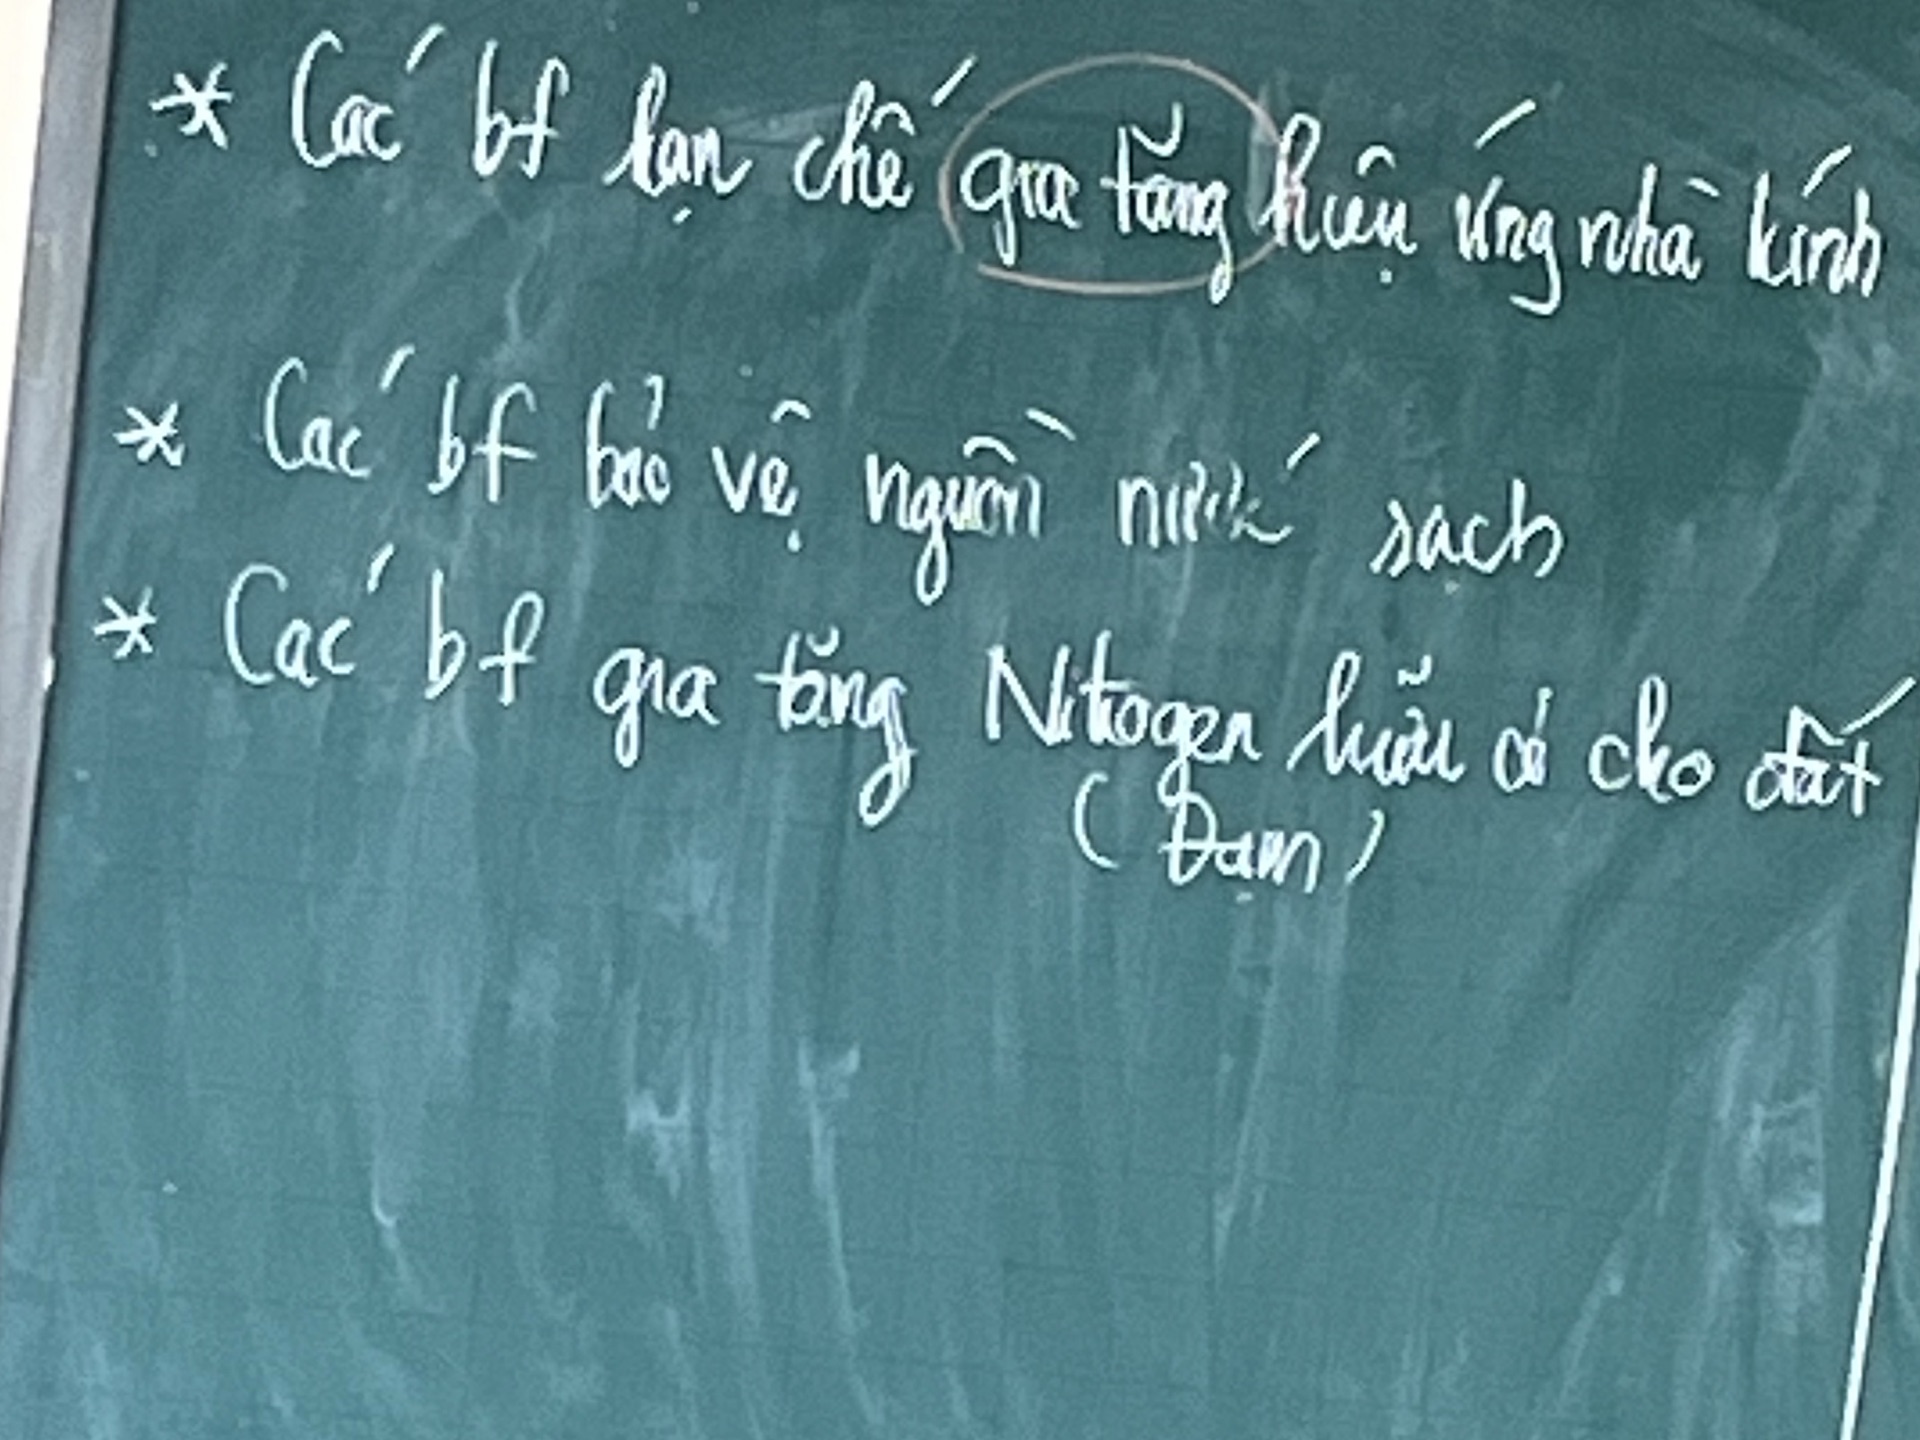 * Các bf hạn chế gia tăng hiệu ứng nhà kính
* Các bf bảo vệ nguồn nước sạch
* Các bf gia tăng Nitrogen hữu cơ cho đất
(Đạm)